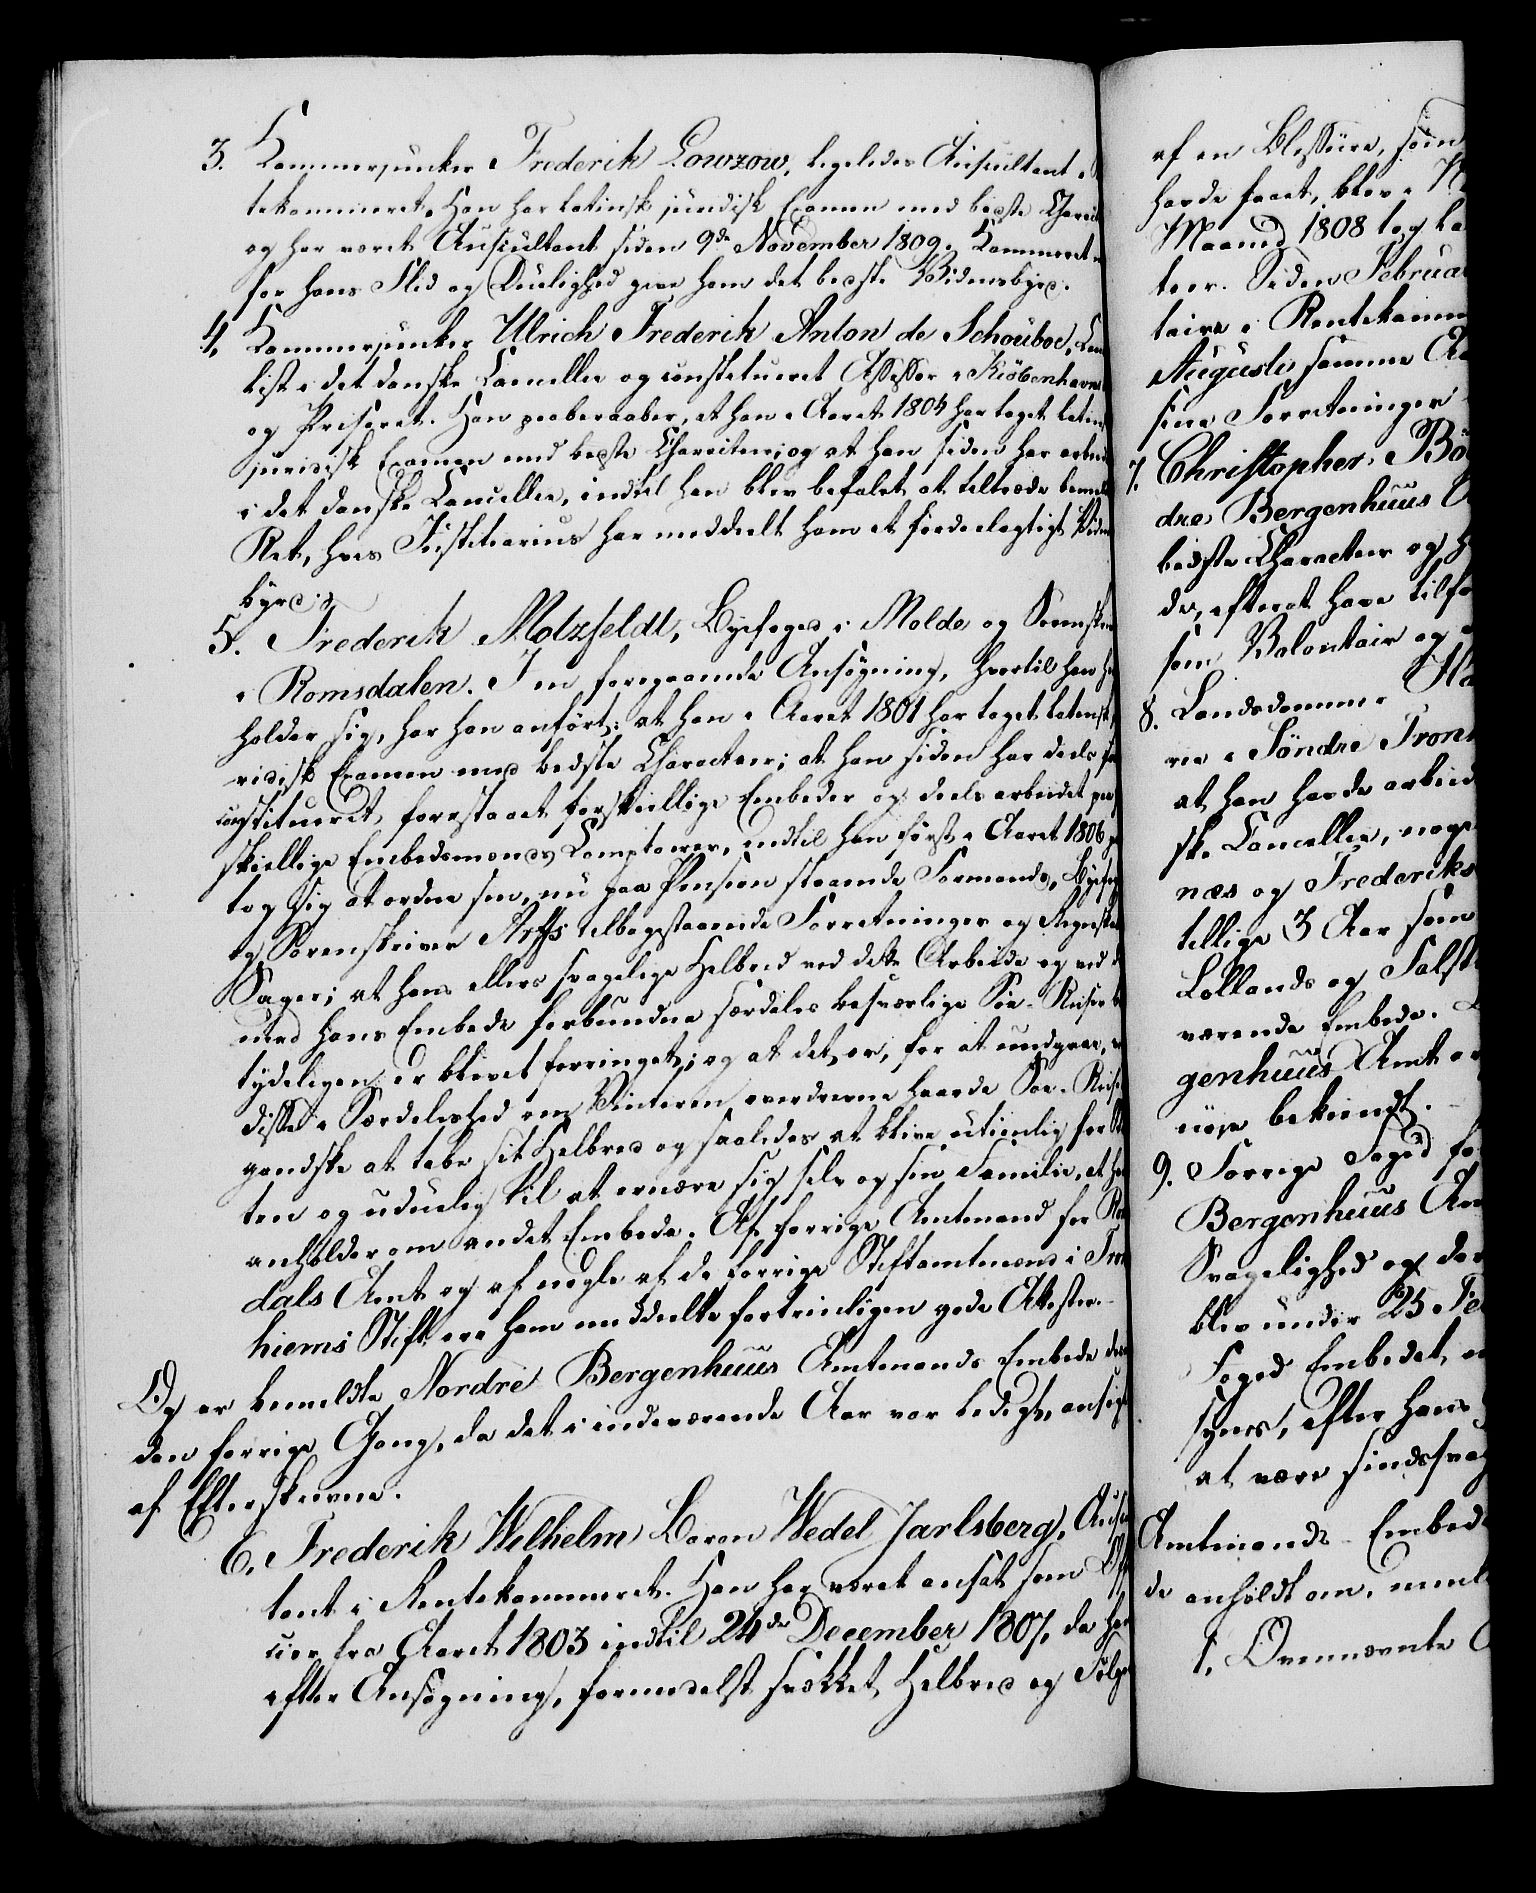 3. Kammerjunker Frederik Lowzow, ligeledes Auscultant i
tekammeret. Han har latinsk juridisk Examen med bedste Charact
og har været Auscultant siden 9de November 1809. Kammeret
for hans Flid og Duelighed give ham det bedste Vidnesbyrd.
4. Kammerjunker Ulrich Frederik Anton de Schouboe, Can
list i det danske Cancellie og constitueret Assessor i Kiöbenhavns
og Priseret. Han paaberaaber, at han i Aaret 1804 har taget latin
juridisk Examen med bedste Charakteer; og at han siden har arbei
i det danske Cancellie, indtil han blev befalet at tiltræde bemel
Ret, hvis Justitiarius har meddeelt ham et fordeelagtigt Vidnes
byrd.
5. Frederik Motzfeldt, Byefoged i Molde og Sorenskr
i Romsdalen. I en foregaaende Ansøgning, hvortil han hen
holder sig, har han anført: at han i Aaret 1801 har taget latinsk
ridisk Examen med bedste Charakteer; at han siden har deels
constitueret forestaaet forskiellige Embeder og deels arbeidet paa
skiellige Embedsmænds Comptoirer, indtil han først i Aaret 1806
tog sig at ordne sin, nu paa Pension staaende Formands, Byefog
og Sorenskriver Arffs tilbagestaaende Forretninger og Regnskab
Sager; at hans ellers svagelige Helbred ved dette Arbeide og ved
med hans Embede forbundne særdeles besværlige Søe-Reiser
tydeligen er blevet forringet; og at det er, for at undgaae,
disse i Særdeleshed om Vinteren overdrevne haarde Søe-Reise
gandske at tabe sit Helbred og saaledes at blive utienlig for
ten og uduelig til at ernære sig selv og sin Familie, at han
anholder om andet Embede. Af forrige Amtmand for Rom
dals Amt og af nogle af de forrige Stiftamtmænd i Tron
hiems Stift ere ham meddeelte fortrinligen gode Attester.
Og er bemeldte Nordre Bergenhuus Amtmands Embede des
den forrige Gang, da det i indeværende Aar var ledigt, ansøgt
af Efterskrevne.
6. Frederik Wilhelm Baron Wedel Jarlsberg, Auscul
tant i Rentekammeret. Han har været ansat som Offi
cier fra Aaret 1803 indtil 24de December 1807, da han
efter Ansøgning, formedelst svækket Helbred og Følge
af en Blessure, som
havde faaet, blev i
Maaned 1808 tog
teer. Siden Februa
taire i Rentekamm
Augusti samme Aa
sine Forretninger
7. Christopher Bö
dre Bergenhuus
bedste Characteer og
de, efterat have
som Volontair og
8. Landsdommer
rie i Söndre Tron
at han havde arbeid
ske Cancellie, noge
næs og Frederiks
tillige 3 Aar som
Lollands og Falst
værende Embede.
genhuus Amt er
nøye bekiendt.
9. Forrige Foged
Bergenhuus Am
Svagelighed og der
blev under 25 Fe
Foged Embedet,
synes, efter hans
at være sindssvag
Amtmands-Embed
de anholdt om, neml
1. Ovennævnte